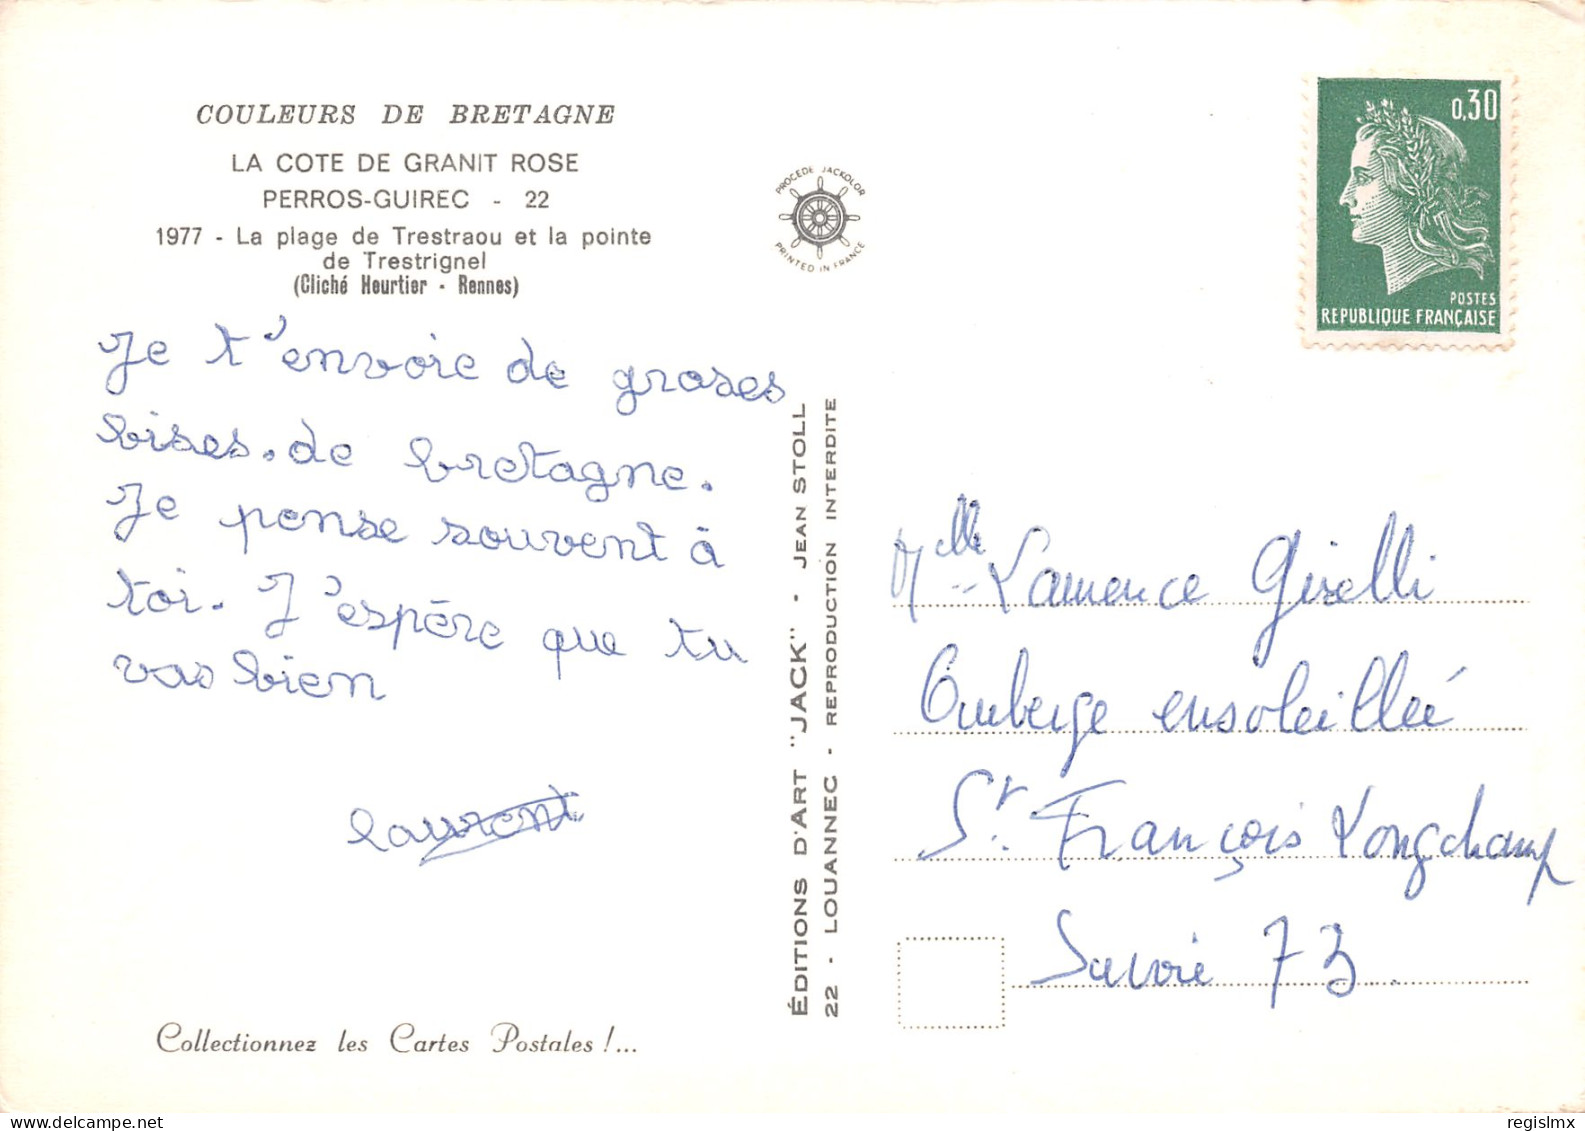 COULEURS DE BRETAGNE
LA COTE DE GRANIT ROSE
PERROS-GUIREC - 22
1977 - La plage de Trestraou et la pointe
de Trestrignel
(Cliché Heurtier - Rennes)
Je t'envoie de groses
bises. de bretagne.
Je pense souvent à
toi. J'espère que tu
vas bien
laurent
Collectionnez les Cartes Postales !...
PROCEDE JACKOLOR
PRINTED IN FRANCE
ÉDITIONS D'ART "JACK" - JEAN STOLL
22 - LOUANNEC - REPRODUCTION INTERDITE
0,30
POSTES
REPUBLIQUE FRANÇAISE
Melle Laurence Giselli
Auberge ensoleillée
St. François Longchamp
Savoie 73.
regislmx